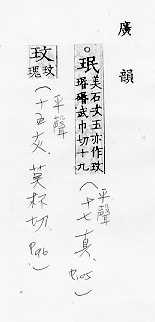 廣韻
。珉美石次玉亦作玟
瑉碈武巾切十九
(平聲
十七真,P.105)
玟玫
瑰
(平聲
十五灰,莫杯切,P.96)